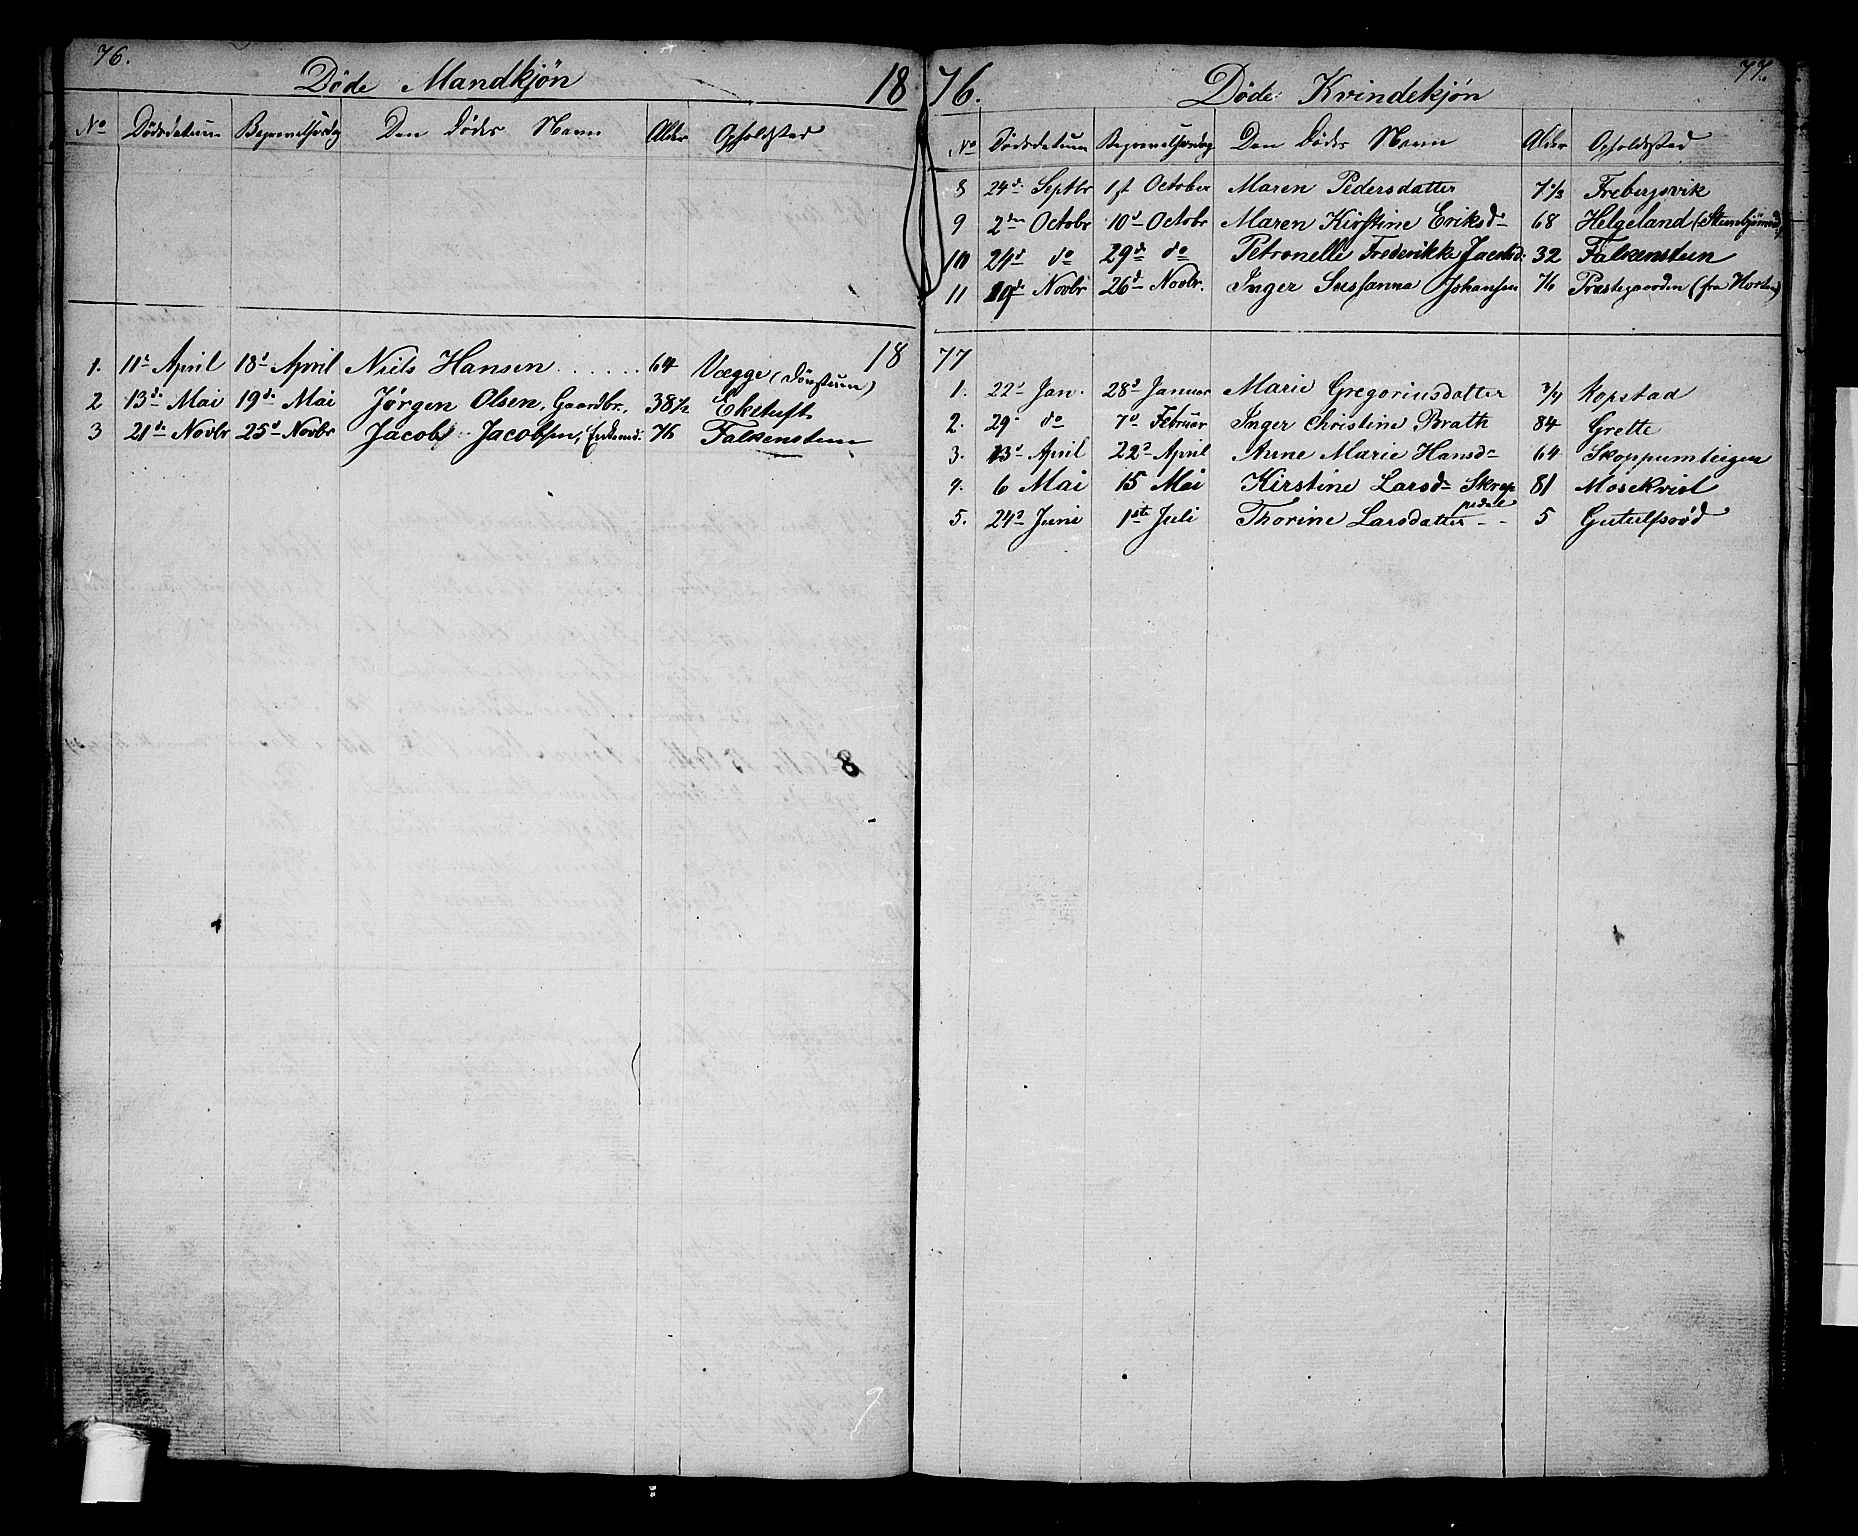 76.
Døde Mandkjøn 18
No Dødsdatum Begravelsesdag Den Dødes Navn Alder Opholdsted
18
1. 11te April 18d April Niels Hansen . . . . . . 64 Vægge (Dønstuen)
2 13de Mai 19de Mai Jørgen Olsen, Gaardbr. 38 1/2 Eketuft
3 21de Novbr 25d Novbr Jacob Jacobsen, Enkemd. 76 Falkensteen
77.
76. Døde Kvindekjøn
No Dødsdatum Begravelsesdag Den Dødes Navn Alder Opholdssted
8 24de Septbr 1st October Maren Pedersdatter Frebergsvik
9 2den Octobr 10d Octobr Maren Kirstine Eriksd 68 Helgeland
10 24d do 29de do Petronelle Frederikke Jacobsd. 32 Falkensteen
11 19de Novbr 26d Novbr. Inger Sussanna Johansen 76 Præstegaarden (fra Horten)
77
1. 22d Jan. 28d Januar Marie Gregoriusdatter 3/4 Kopstad
2. 29 do 7d Februar Inger Christine Brath 84 Grette
3. 13d April 22d April Anne Marie Hansd 64 Skoppumteigen
4. 6 Mai 15 Mai Kirstine Larsd 81 Mosekvist
5. 24d Juni 1ste Juli Thorine Larsdatter - - 5 Gutulfsrød
8